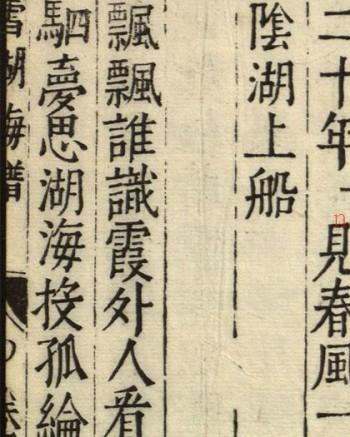 二十年一見春風一
陰湖上船
飄飄誰識霞外人看
駟夢思湖海投孤綸
雪湖梅譜
卷